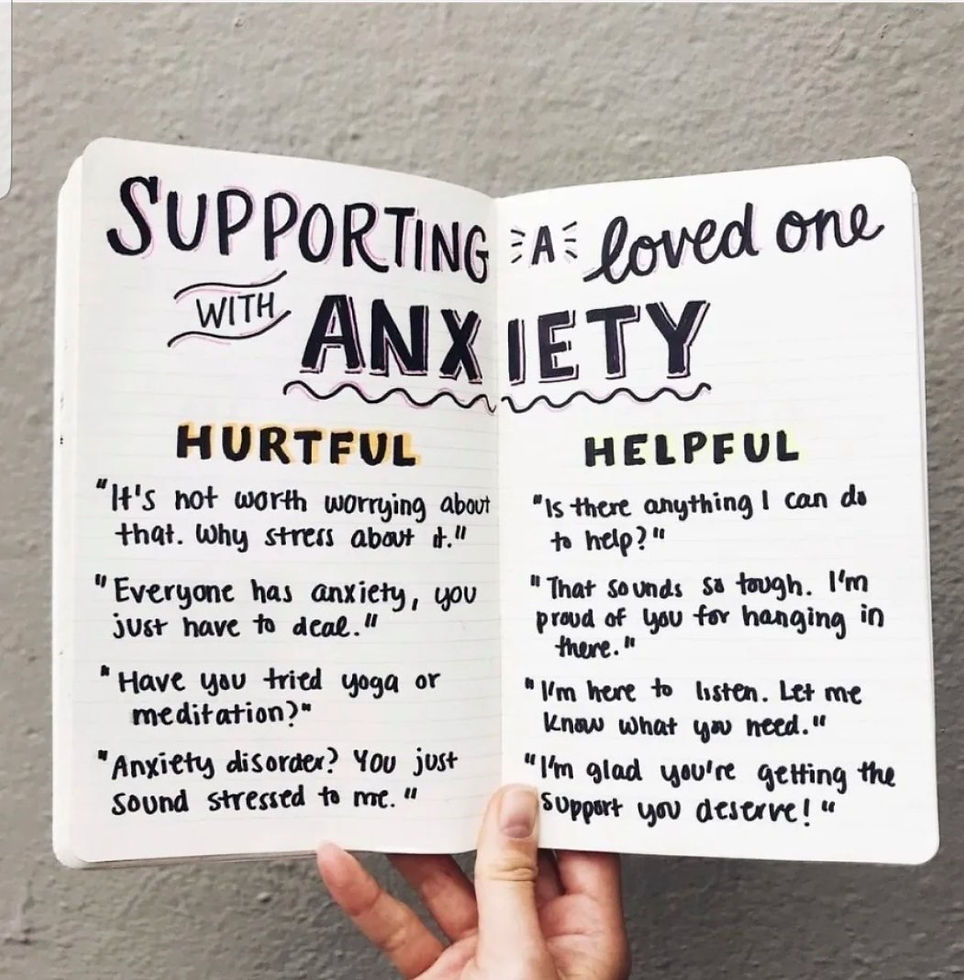 SUPPORTING A loved one
WITH ANXIETY
HURTFUL
"It's not worth worrying about
that. Why stress about it."
"Everyone has anxiety, you
just have to deal."
"Have you tried yoga or
meditation?"
"Anxiety disorder? You just
sound stressed to me."
HELPFUL
"Is there anything I can do
to help?"
"That sounds so tough. I'm
proud of you for hanging in
there."
"I'm here to listen. Let me
know what you need."
"I'm glad you're getting the
support you deserve!"